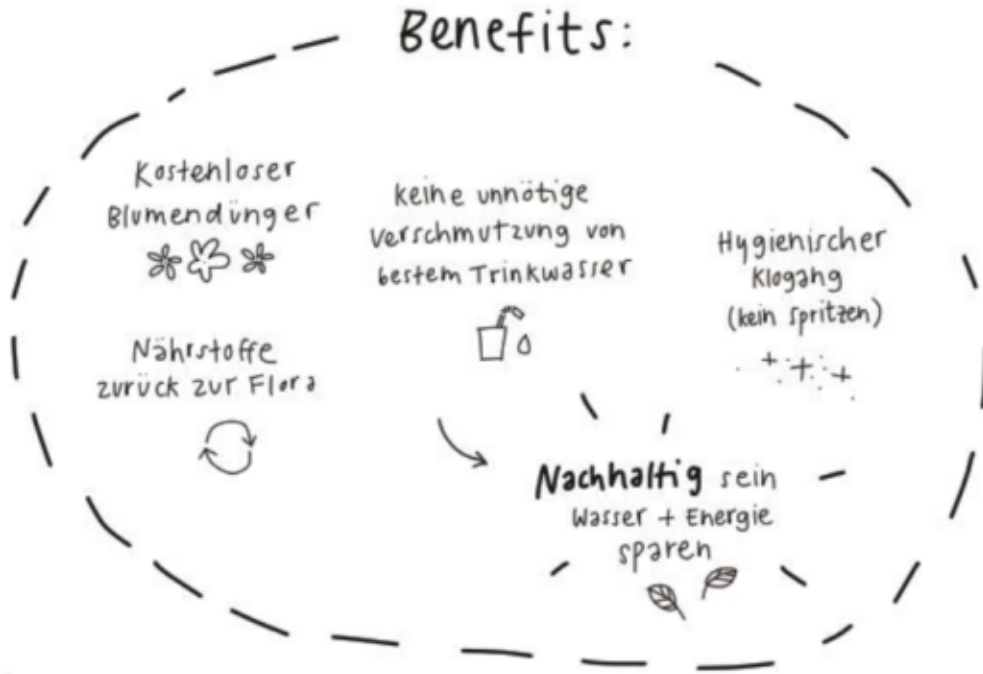 Benefits:
Kostenloser
Blumendünger
Nährstoffe
zurück zur Flora
keine unnötige
Verschmutzung von
bestem Trinkwasser
Hygienischer
Klogang
(kein spritzen)
Nachhaltig sein
Wasser + Energie
sparen